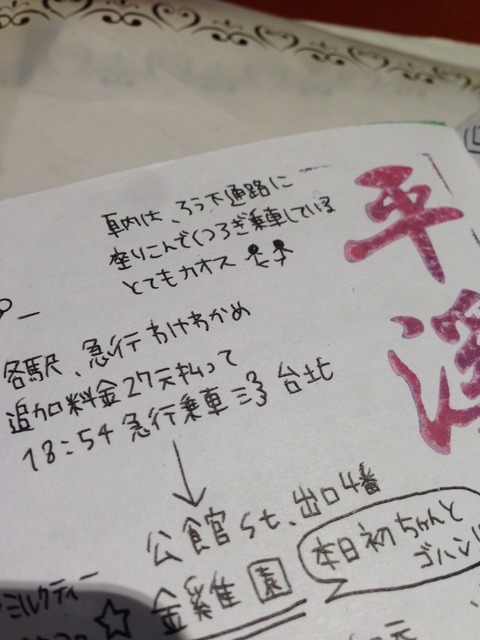 車内は、ろう下通路に
座りこんでくつろぎ乗車している
とてもカオス
各駅、急行わけわかめ
追加料金27元払って
18:54急行乗車 台北
↓
公食官st、出口4番
金雞園
本日初ちゃんと
ゴハン
ミルクティー
☆
平
溪